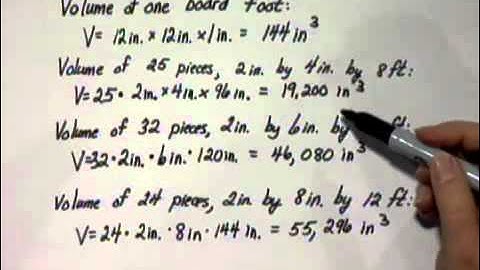 Volume of one board foot:
V = 12in. × 12in. × 1in. = 144 in³
Volume of 25 pieces, 2in. by 4in. by 8 ft:
V = 25 · 2in. × 4in. × 96in. = 19,200 in³
Volume of 32 pieces, 2in. by 6in. by ft:
V = 32 · 2in. · 6in. · 120in. = 46,080 in³
Volume of 24 pieces, 2in. by 8in. by 12 ft:
V = 24 · 2in. · 8in · 144 in. = 55,296 in³